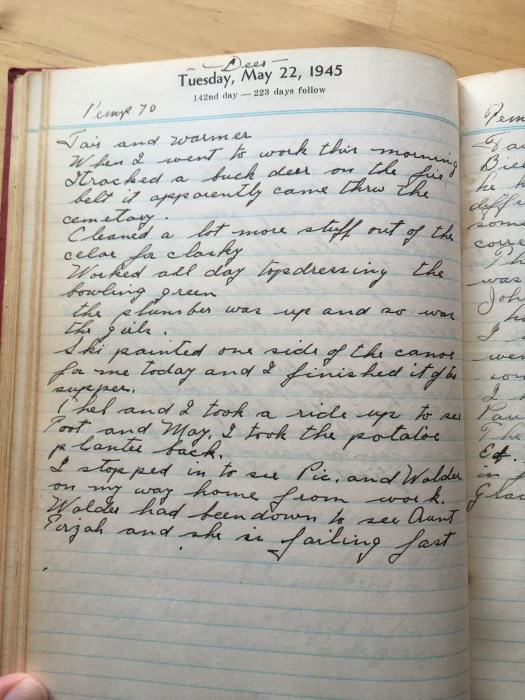 — Deer —
Tuesday, May 22, 1945
142nd day — 223 days follow
Temp 70
Fair and warmer
When I went to work this morning
I tracked a buck deer on the fire
belt it apparently came thru the
cemetary.
Cleaned a lot more stuff out of the
celar for clasky
Worked all day topdressing the
bowling green
the plumber was up and so was
the girls.
Ski painted one side of the canoe
for me today and I finished it after
supper.
Chel and I took a ride up to see
Poot and May, I took the potatoe
planter back.
I stopped in to see Pic. and Walder
on my way home from work.
Walder had been down to see Aunt
Tirzah and she is failing fast
Tem
Fai
Bie
he h
diffe
some
corre
Ph
was
Joh
ha
I s
wen
I
Pau
The
Ed.
in f